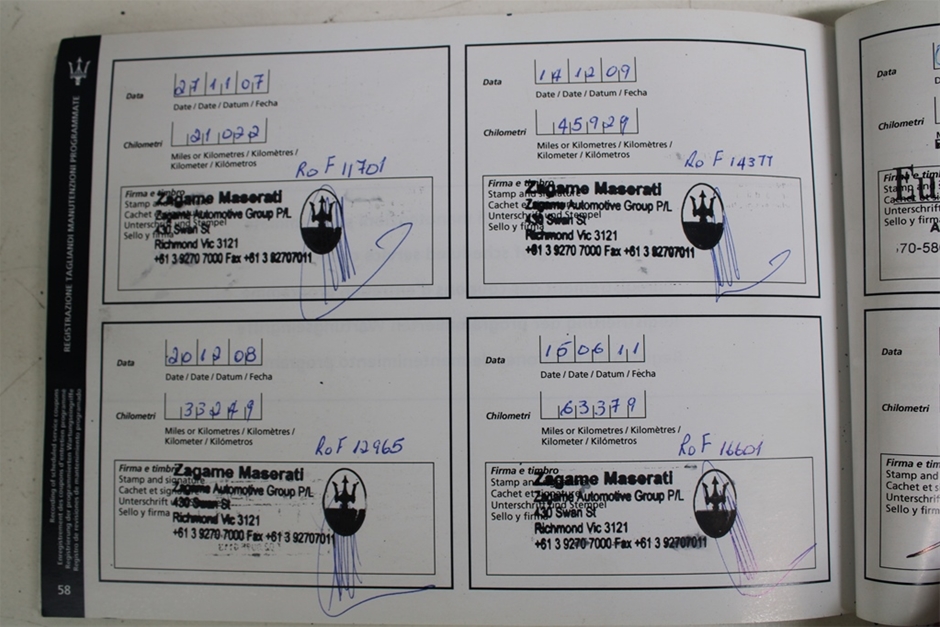 REGISTRAZIONE TAGLIANDI MANUTENZIONI PROGRAMMATE
Recording of scheduled service coupons
Enregistrement des coupons d'entretien programmé
Registrierung der programmierten Wartungseingriffe
Registro de revisiones de mantenimiento programado
58
Data
27 11 07
Date / Date / Datum / Fecha
Chilometri
21022
Miles or Kilometres / Kilomètres /
Kilometer / Kilómetros
RoF 11701
Firma e timbro
Stamp and
Cachet
Unterschrift und Stempel
Sello y firma
Zagame Maserati
Zagame Automotive Group P/L
430 Swan St
Richmond Vic 3121
+61 3 9270 7000 Fax +61 3 92707011
Data
20 12 08
Date / Date / Datum / Fecha
Chilometri
33249
Miles or Kilometres / Kilomètres /
Kilometer / Kilómetros
RoF 12965
Firma e timbro
Stamp and signature
Cachet et
Unterschrift
Sello y firma
Zagame Maserati
Zagame Automotive Group P/L
430 Swan St
Richmond Vic 3121
+61 3 9270 7000 Fax +61 3 92707011
Data
14 12 09
Date / Date / Datum / Fecha
Chilometri
45929
Miles or Kilometres / Kilomètres /
Kilometer / Kilómetros
RoF 14377
Firma e timbro
Stamp and signature
Cachet
Unterschrift und Stempel
Sello y firma
Zagame Maserati
Zagame Automotive Group P/L
430 Swan St
Richmond Vic 3121
+61 3 9270 7000 Fax +61 3 92707011
Data
15 06 11
Date / Date / Datum / Fecha
Chilometri
63379
Miles or Kilometres / Kilomètres /
Kilometer / Kilómetros
RoF 16601
Firma e timbro
Stamp and
Cachet et
Unterschrift und Stempel
Sello y firma
Zagame Maserati
Zagame Automotive Group P/L
430 Swan St
Richmond Vic 3121
+61 3 9270 7000 Fax +61 3 92707011
Data
Chilometri
Stamp and
Cachet e
Unterschrift
Sello y firma
70-58
Data
Chilometri
Firma e timb
Stamp and
Cachet et s
Unterschrif
Sello y firm